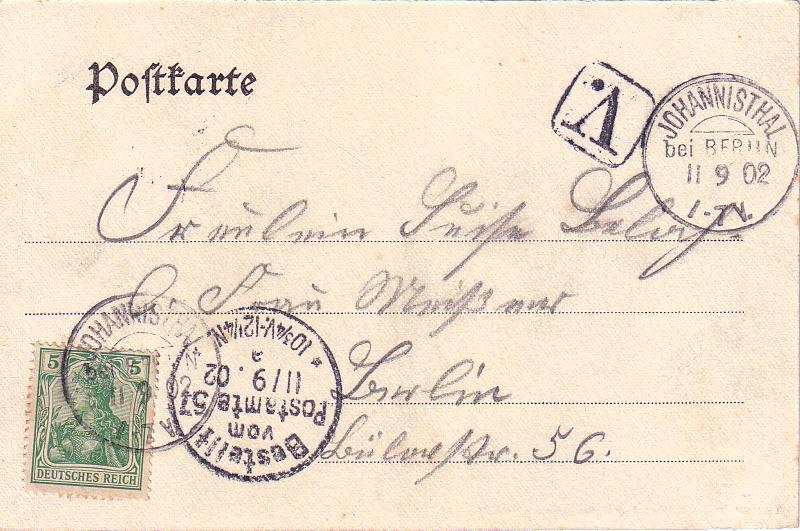 Postkarte
V.
JOHANNISTHAL
bei BERLIN
11 9 02
1-7V.
Fräulein
Frau Meißner
Berlin
Bülowstr. 56.
JOHANNISTHAL
11 9 02
Bestellt
vom
Postamte 57
11/9.02
a
* 10¾V.-12¼N. *
5 5
DEUTSCHES REICH